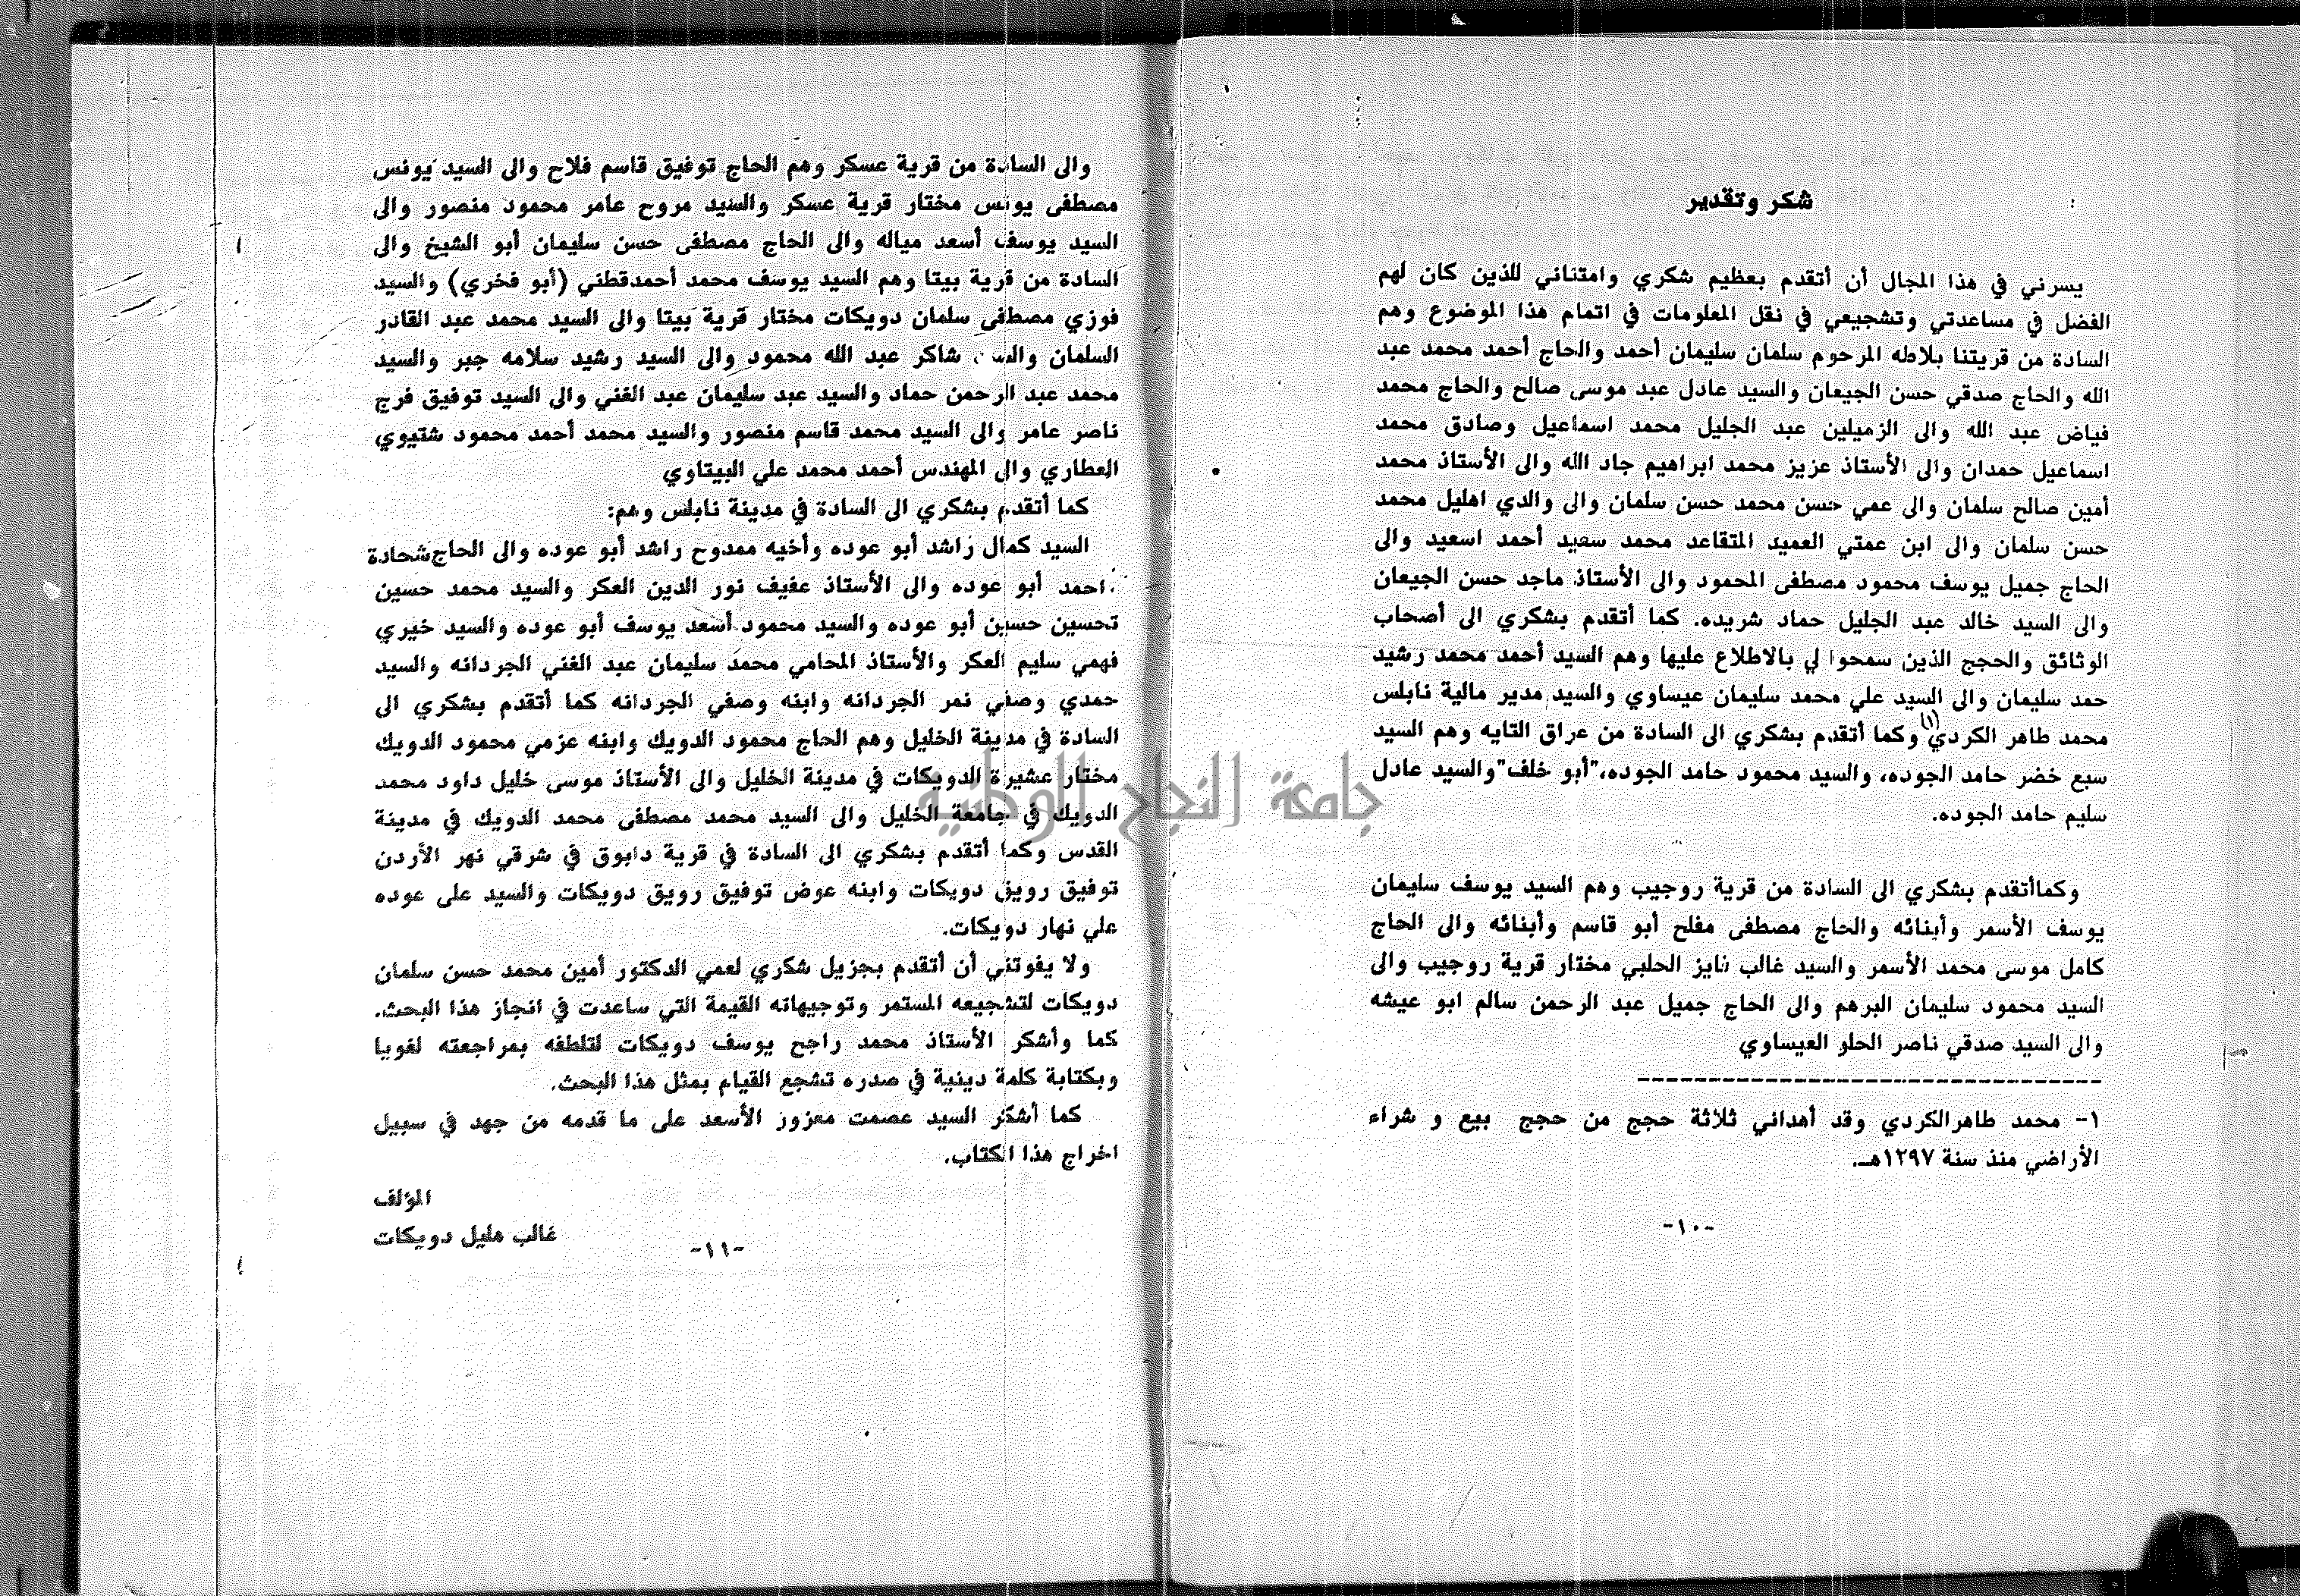 شكر وتقدير
يسرني في هذا المجال أن أتقدم بعظيم شكري وامتناني للذين كان لهم
الفضل في مساعدتي وتشجيعي في نقل المعلومات في اتمام هذا الموضوع وهم
السادة من قريتنا بلاطه المرحوم سلمان سليمان أحمد والحاج أحمد محمد عبد
الله والحاج صدقي حسن الجيعان والسيد عادل عبد موسى صالح والحاج محمد
فياض عبد الله والى الزميلين عبد الجليل محمد اسماعيل وصادق محمد
اسماعيل حمدان والى الأستاذ عزيز محمد ابراهيم جاد الله والى الأستاذ محمد
أمين صالح سلمان والى عمي حسن محمد حسن سلمان والى والدي اهليل محمد
حسن سلمان والى ابن عمتي العميد المتقاعد محمد سعيد أحمد اسعيد والى
الحاج جميل يوسف محمود مصطفى المحمود والى الأستاذ ماجد حسن الجيعان
والى السيد خالد عبد الجليل حماد شريده. كما أتقدم بشكري الى أصحاب
الوثائق والحجج الذين سمحوا لي بالاطلاع عليها وهم السيد أحمد محمد رشيد
حمد سليمان والى السيد علي محمد سليمان عيساوي والسيد مدير مالية نابلس
محمد طاهر الكردي(١) وكما أتقدم بشكري الى السادة من عراق التايه وهم السيد
سبع خضر حامد الجوده، والسيد محمود حامد الجوده،"أبو خلف"والسيد عادل
سليم حامد الجوده.
وكماأتقدم بشكري الى السادة من قرية روجيب وهم السيد يوسف سليمان
يوسف الأسمر وأبنائه والحاج مصطفى مفلح أبو قاسم وأبنائه والى الحاج
كامل موسى محمد الأسمر والسيد غالب فايز الحلبي مختار قرية روجيب والى
السيد محمود سليمان البرهم والى الحاج جميل عبد الرحمن سالم ابو عيشه
والى السيد صدقي ناصر الحلو العيساوي
١- محمد طاهرالكردي وقد أهداني ثلاثة حجج من حجج بيع و شراء
الأراضي منذ سنة ١٢٩٧هـ.
-١٠-
والى السادة من قرية عسكر وهم الحاج توفيق قاسم فلاح والى السيد يونس
مصطفى يونس مختار قرية عسكر والسيد مروح عامر محمود منصور والى
السيد يوسف أسعد مياله والى الحاج مصطفى حسن سليمان أبو الشيخ والى
السادة من قرية بيتا وهم السيد يوسف محمد أحمدقطني (أبو فخري) والسيد
فوزي مصطفى سلمان دويكات مختار قرية بيتا والى السيد محمد عبد القادر
السلمان والسيد شاكر عبد الله محمود والى السيد رشيد سلامه جبر والسيد
محمد عبد الرحمن حماد والسيد عبد سليمان عبد الغني والى السيد توفيق فرج
ناصر عامر والى السيد محمد قاسم منصور والسيد محمد أحمد محمود شتيوي
العطاري والى المهندس أحمد محمد علي البيتاوي
كما أتقدم بشكري الى السادة في مدينة نابلس وهم:
السيد كمال راشد أبو عوده وأخيه ممدوح راشد أبو عوده والى الحاج شحادة
احمد أبو عوده والى الأستاذ عفيف نور الدين العكر والسيد محمد حسين
تحسين حسين أبو عوده والسيد محمود أسعد يوسف أبو عوده والسيد خيري
فهمي سليم العكر والأستاذ المحامي محمد سليمان عبد الغني الجردانه والسيد
حمدي وصفي نمر الجردانه وابنه وصفي الجردانه كما أتقدم بشكري الى
السادة في مدينة الخليل وهم الحاج محمود الدويك وابنه عزمي محمود الدويك
مختار عشيرة الدويكات في مدينة الخليل والى الأستاذ موسى خليل داود محمد
الدويك في جامعة الخليل والى السيد محمد مصطفى محمد الدويك في مدينة
القدس وكما أتقدم بشكري الى السادة في قرية دابوق في شرقي نهر الأردن
توفيق رويق دويكات وابنه عوض توفيق رويق دويكات والسيد على عوده
علي نهار دويكات.
ولا يفوتني أن أتقدم بجزيل شكري لعمي الدكتور أمين محمد حسن سلمان
دويكات لتشجيعه المستمر وتوجيهاته القيمة التي ساعدت في انجاز هذا البحث.
كما وأشكر الأستاذ محمد راجح يوسف دويكات لتلطفه بمراجعته لغويا
وبكتابة كلمة دينية في صدره تشجع القيام بمثل هذا البحث.
كما أشكر السيد عصمت معزوز الأسعد على ما قدمه من جهد في سبيل
اخراج هذا الكتاب.
المؤلف
غالب هليل دويكات
-١١-
جامعة النجاح الوطنية